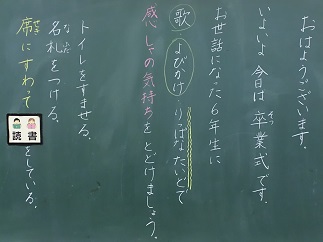 おはようございます。
いよいよ 今日は 卒業式です。
お世話になった6年生に
歌 よびかけ りっぱなたいどで
感しゃの気持ちを とどけましょう。
トイレをすませる。
名札をつける。
席にすわって読書をしている。